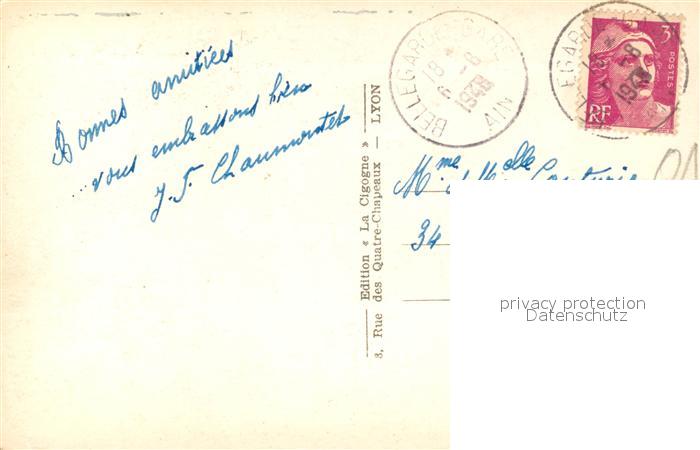 Bonnes amitiés
... vous embrassons bien
J.T. Chaumontet
Edition « La Cigogne »
3, Rue des Quatre-Chapeaux — LYON
BELLEGARDE GARE
18 *
6 - 8
1948
AIN
3F
POSTES
RF
Mme Melle
34
privacy protection
Datenschutz